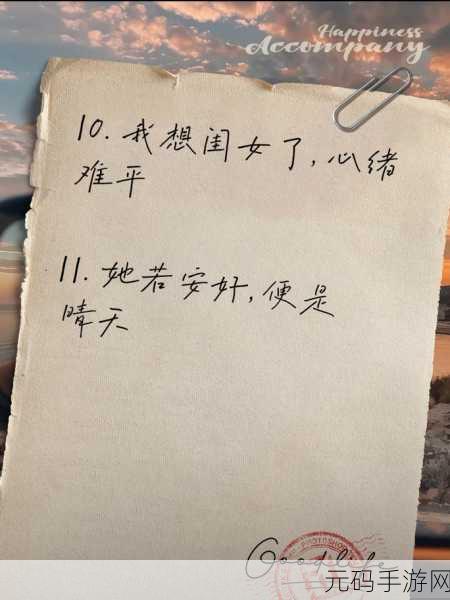 Happiness
Accompany
10. 我想闺女了,心绪
难平
11. 她若安好,便是
晴天
Good life
PHOTOSHOP
元码手游网